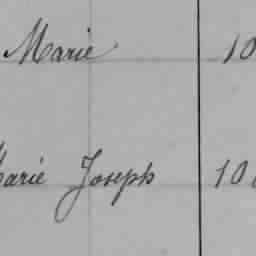 Marie 10
Marie Joseph 10